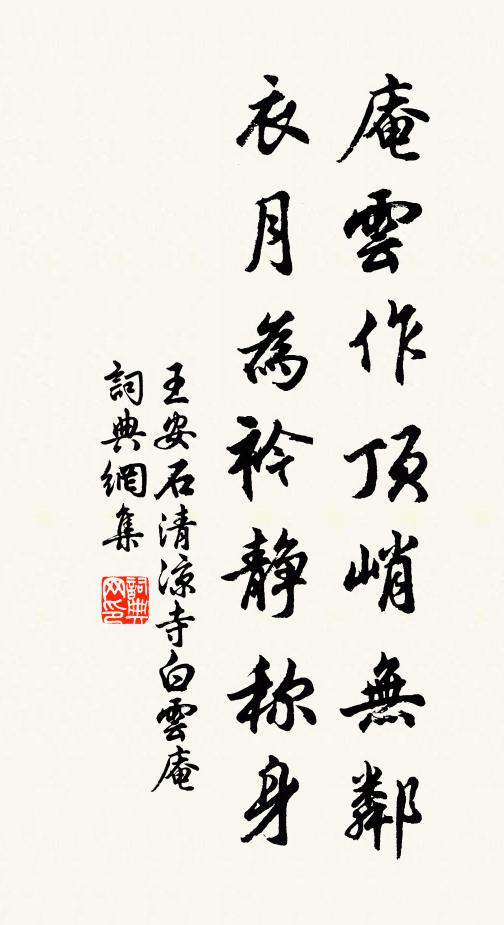 庵雲作頂峭無鄰
衣月為衿静称身
王安石清涼寺白雲庵
詞典網集
詞典網印